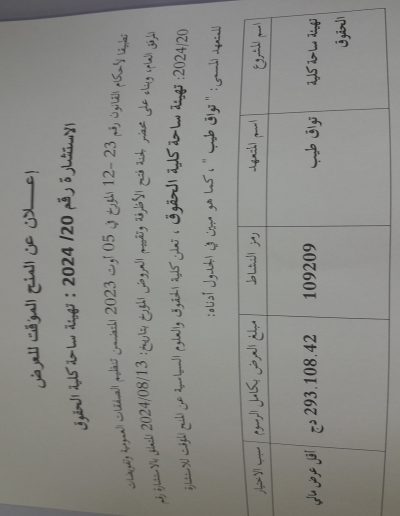 إعــــلان عن المنح المؤقت للعرض
الاستشارة رقم 20/ 2024 : تهيئة ساحة كلية الحقوق
تطبيقا لأحكام القانون رقم 23 -12 المؤرخ في 05 أوت 2023 المتضمن تنظيم الصفقات العمومية وتفويضات
المرفق العام، وبناء على محضر لجنة فتح الأظرفة وتقييم العروض المؤرخ بتاريخ: 2024/08/13 المتعلق بالاستشارة رقم
2024/20: تهيئة ساحة كلية الحقوق ، تعلن كلية الحقوق والعلوم السياسية عن المنح المؤقت للاستشارة
للمتعهد المسمى: " تواق طيب " ، كما هو مبين في الجدول أدناه:
اسم المشروع اسم المتعهد رمز النشاط مبلغ العرض بكامل الرسوم سبب الاختيار
تهيئة ساحة كلية الحقوق تواق طيب 109209 293.108.42 دج أقل عرض مالي